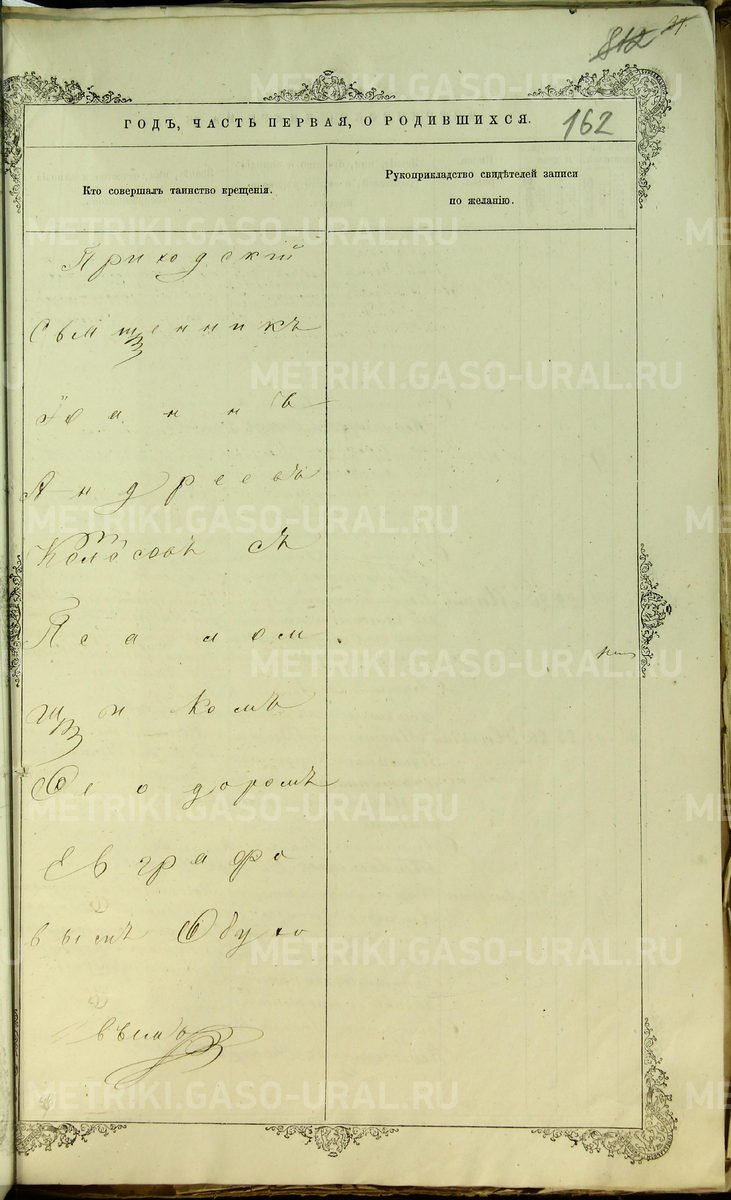 162
ГОДЪ, ЧАСТЬ ПЕРВАЯ, О РОДИВШИХСЯ.
Кто совершалъ таинство крещенія.
Рукоприкладство свидѣтелей записи
по желанію.
Приходскій
Священникъ
Іоаннъ
Андреевъ
Колосовъ съ
Псалом
щикомъ
Ѳеодоромъ
Евграфо
вымъ Обухо
вымъ
METRIKI.GASO-URAL.RU